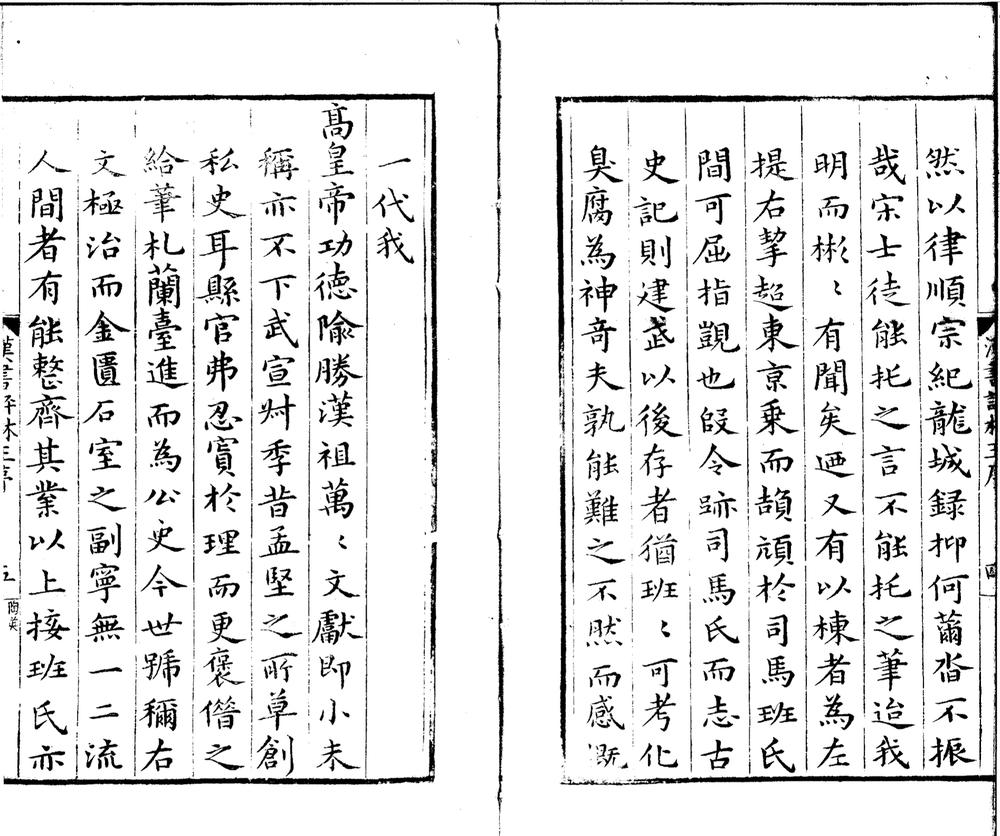 然以律順宗紀龍城録抑何薾沓不振
哉宋士徒能托之言不能托之筆迨我
明而彬〻有聞矣迺又有以棟者為左
提右挈超東京乗而頡頏於司馬班氏
間可屈指覬也叚令跡司馬氏而志古
史記則建武以後存者猶班〻可考化
臭腐為神竒夫孰能難之不然而感慨
一代我
髙皇帝功徳隃勝漢祖萬〻文獻即小未
稱亦不下武宣尌季昔孟堅之所草創
私史耳縣官弗忍寘於理而更褒僭之
給筆札蘭臺進而為公史今世號稱右
文極治而金匱石室之副寧無一二流
人間者有能整齊其業以上接班氏亦
漢書評林王序
五